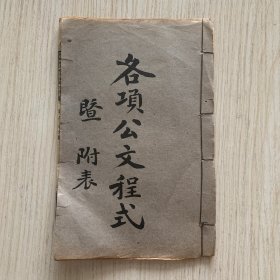 各項公文程式
暨附表